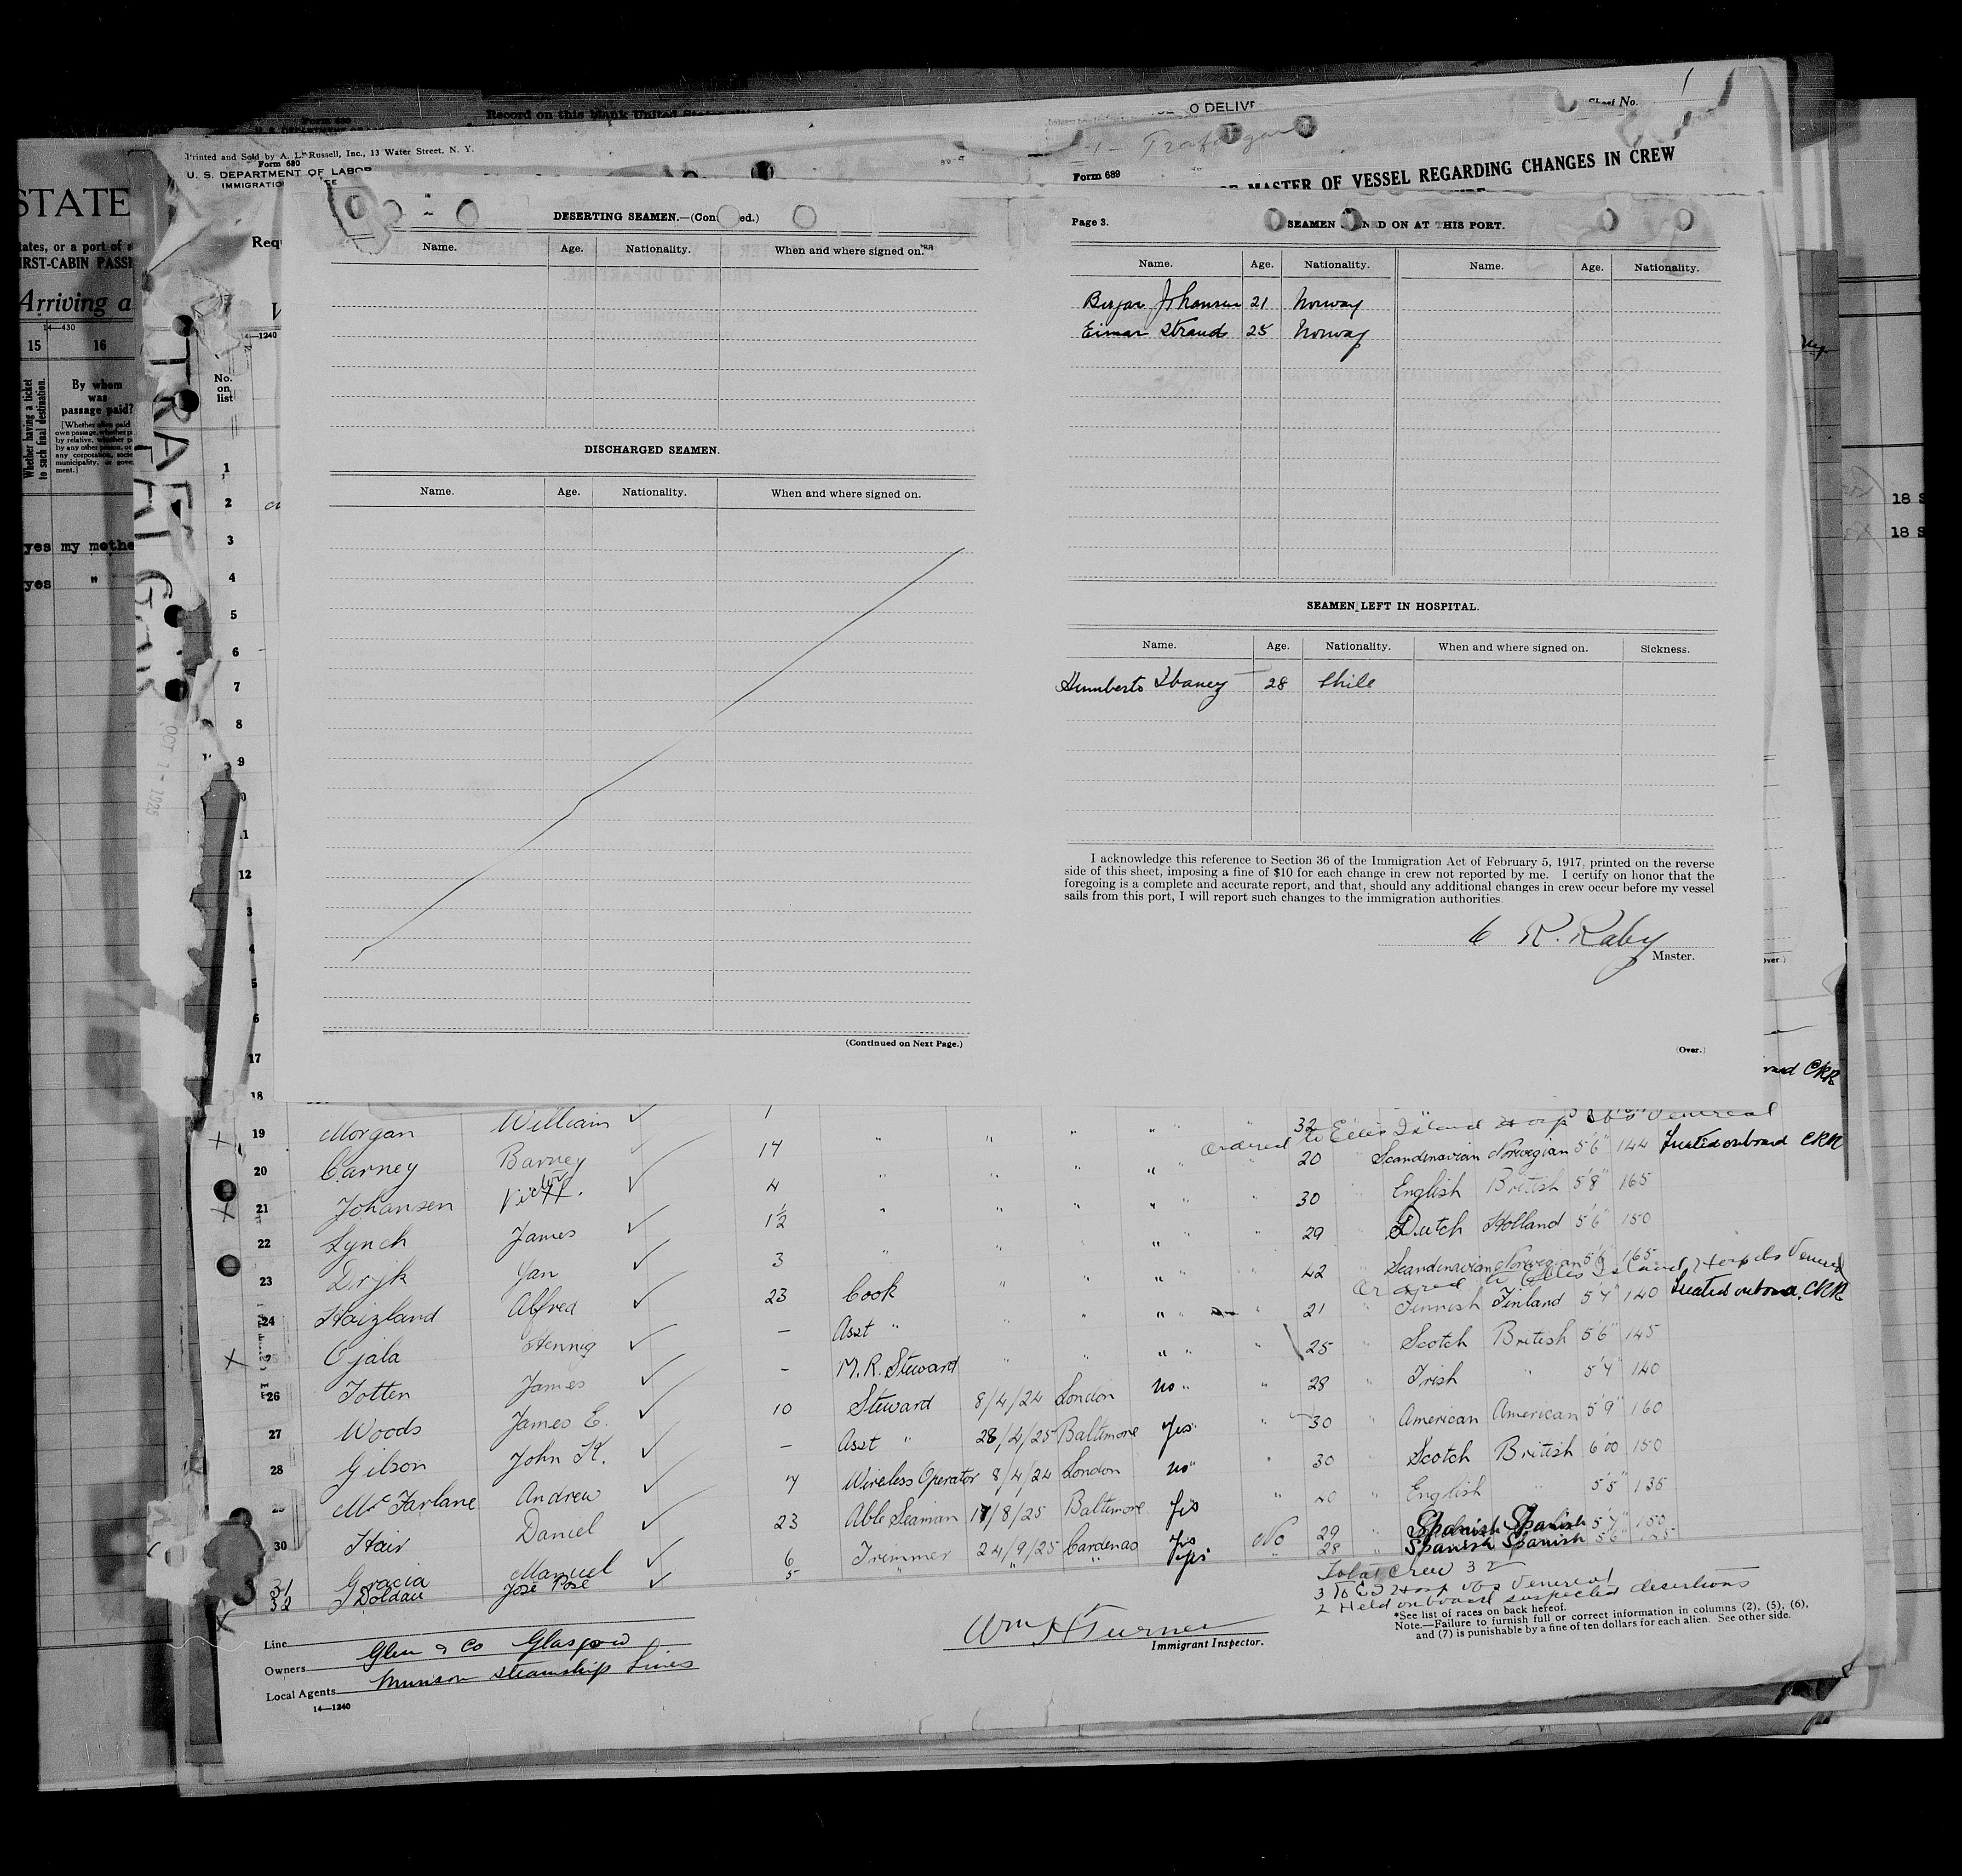 Record on this blank United States
Form 630
O DELIVE
Sheet No.
1
Trafalgar
Printed and Sold by A. L. Russell, Inc., 13 Water Street, N. Y.
Form 680
U. S. DEPARTMENT OF LABOR
IMMIGRATION
Form 689
MASTER OF VESSEL REGARDING CHANGES IN CREW
STATE
ates, or a port of
IRST-CABIN PASS
Arriving a
14—430
15 16
Whether having a ticket to such final destination.
By whom
was
passage paid?
[Whether alien paid
own passage, whether p
by relative, whether p
by any other person, or
any corporation, socie
municipality, or gove
ment.]
yes my mothe
yes "
TRAFALGAR
OCT 1 - 1925
Requ
14—1240
No.
on
list
DESERTING SEAMEN.—(Con ed.)
Name. Age. Nationality. When and where signed on.
DISCHARGED SEAMEN.
Name. Age. Nationality. When and where signed on.
(Continued on Next Page.)
Page 3. SEAMEN NED ON AT THIS PORT.
Name. Age. Nationality. Name. Age. Nationality.
Birgar Johansen 21 Norway
Eimar Strand 25 Norway
SEAMEN LEFT IN HOSPITAL.
Name. Age. Nationality. When and where signed on. Sickness.
Humberto Ibanez 28 Chile
I acknowledge this reference to Section 36 of the Immigration Act of February 5, 1917, printed on the reverse
side of this sheet, imposing a fine of $10 for each change in crew not reported by me. I certify on honor that the
foregoing is a complete and accurate report, and that, should any additional changes in crew occur before my vessel
sails from this port, I will report such changes to the immigration authorities.
C R. Raby
Master.
(Over.)
1
2
3
4
5
6
7
8
9
0
1
12
3
4
5
6
17
18
18 S
18 S
CRR
19 Morgan William 1 " " " " 32
Ordered to Ellis Island Hosp obs Venereal
20 Carney Barney 14 " " " " 20 Scandinavian Norwegian 5'6" 144 Treated onboard CRR
21 Johansen Victor 4 " " " " 30 English British 5'8" 165
22 Lynch James 1½ " " " " 29 Dutch Holland 5'6" 150
23 Dryk Jan 3 " " " " 42 Scandinavian Norwegian 5'6" 165
Ordered to Ellis Island Hosp obs Venereal
24 Haizland Alfred 23 Cook " " " " 21 Finnish Finland 5'7" 140 Treated onboard CRR
25 Ojala Hennig — Asst " " " " " 25 Scotch British 5'6" 145
26 Totten James — M.R. Steward " " " " 28 Irish " 5'7" 140
27 Woods James E. 10 Steward 8/4/24 London no " " 30 American American 5'9" 160
28 Gilson John K. — Asst " 28/4/25 Baltimore Yes " 30 Scotch British 6'00 150
29 McFarlane Andrew 7 Wireless Operator 8/4/24 London no " " 40 English " 5'5" 135
30 Hair Daniel 23 Able Seaman 17/8/25 Baltimore Yes 29 Spanish Spanish 5'7" 150
31 Gracia Manuel 6 Trimmer 24/9/25 Cardenas Yes No 28 Spanish Spanish 5'6" 125
32 Doldau Jose Pose 5 " " " Yes "
Total Crew 32
3 To E I Hosp obs Venereal
2 Held onboard suspected desertions
*See list of races on back hereof.
Note.—Failure to furnish full or correct information in columns (2), (5), (6),
and (7) is punishable by a fine of ten dollars for each alien. See other side.
Wm H Turner
Immigrant Inspector.
Line
Owners Glen & Co Glasgow
Local Agents Munson Steamship Lines
14—1240